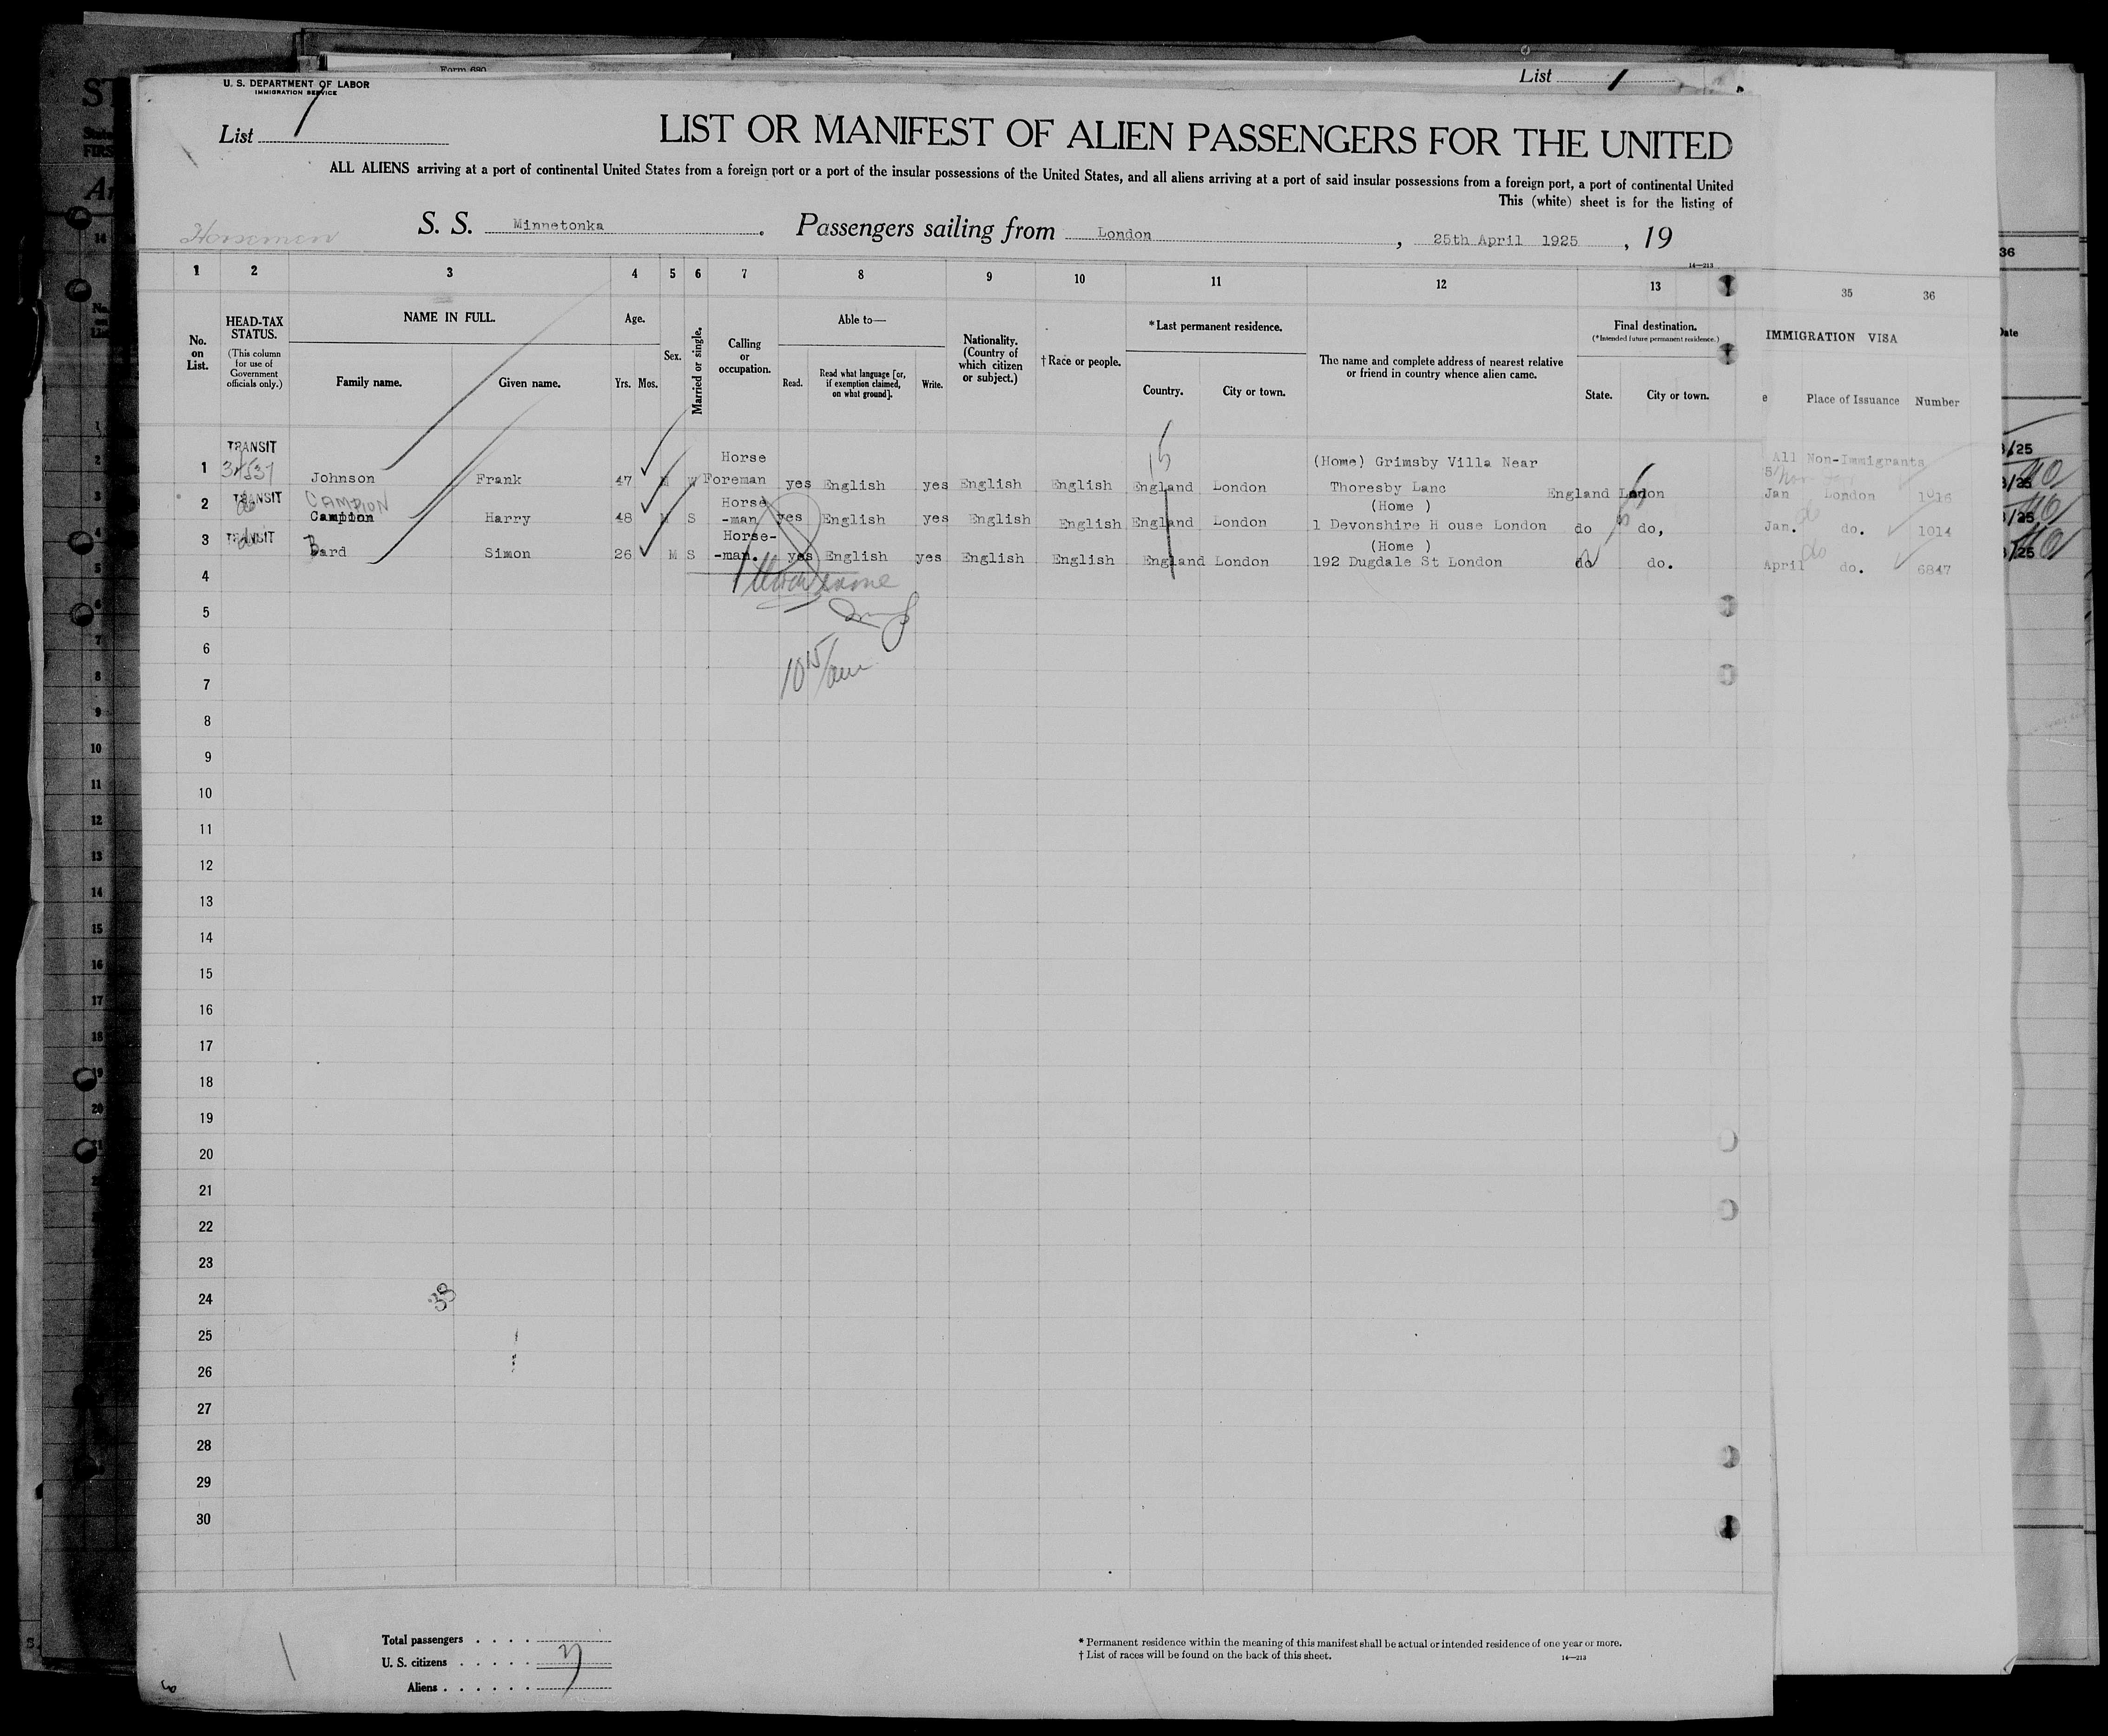 Form 680
List 1
U. S. DEPARTMENT OF LABOR
IMMIGRATION SERVICE
List 1
LIST OR MANIFEST OF ALIEN PASSENGERS FOR THE UNITED
ALL ALIENS arriving at a port of continental United States from a foreign port or a port of the insular possessions of the United States, and all aliens arriving at a port of said insular possessions from a foreign port, a port of continental United
This (white) sheet is for the listing of
Horsemen S. S. Minnetonka. Passengers sailing from London, 25th April 1925, 19
14—213
1 2 3 4 5 6 7 8 9 10 11 12 13 35 36
No. on List.
HEAD-TAX STATUS.
(This column for use of Government officials only.)
NAME IN FULL.
Family name. Given name.
Age.
Yrs. Mos.
Sex.
Married or single.
Calling or occupation.
Able to—
Read. Read what language [or, if exemption claimed, on what ground]. Write.
Nationality. (Country of which citizen or subject.)
† Race or people.
* Last permanent residence.
Country. City or town.
The name and complete address of nearest relative or friend in country whence alien came.
Final destination.
(* Intended future permanent residence.)
State. City or town.
IMMIGRATION VISA
Place of Issuance Number
TRANSIT Horse (Home) Grimsby Villa Near All Non-Immigrants
1 Johnson Frank 47 M W Foreman yes English yes English English England London Thoresby Lane England London Jan London 1916
TRANSIT CAMPION Horse (Home )
2 Campion Harry 48 M S -man yes English yes English English England London 1 Devonshire H ouse London do do, Jan. do. 1014
TRANSIT Horse- (Home )
3 Bard Simon 26 M S -man. yes English yes English English England London 192 Dugdale St London do do. April do. 6847
4
5
6
10 15/am
7
8
9
10
11
12
13
14
15
16
17
18
19
20
21
22
23
24
38
25
26
27
28
29
30
Total passengers . . . .
U. S. citizens . . . . .
Aliens . . . . . .
3
* Permanent residence within the meaning of this manifest shall be actual or intended residence of one year or more.
† List of races will be found on the back of this sheet.
14—213